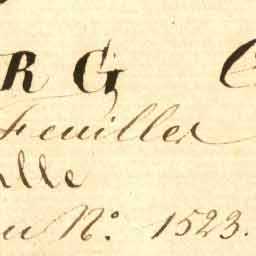 RG C
Feuilles
lle
au No. 1523.